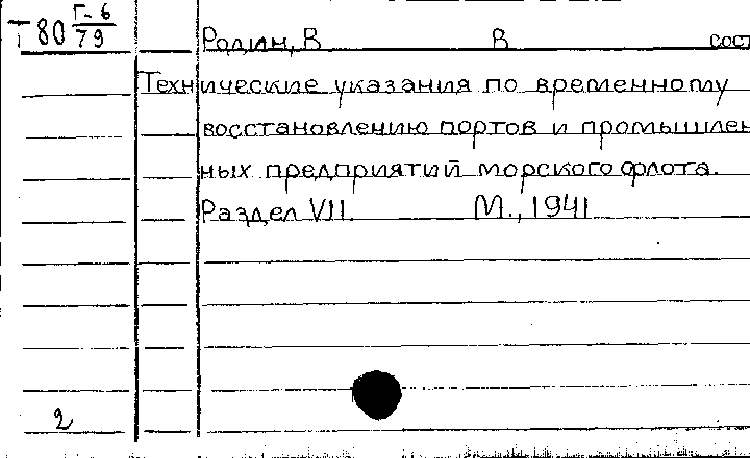 Т 80 Г-6/79
Родин, В В сост
Технические указания по временному
восстановлению портов и промышлен
ных предприятий морского флота.
Раздел VII. М., 1941
2